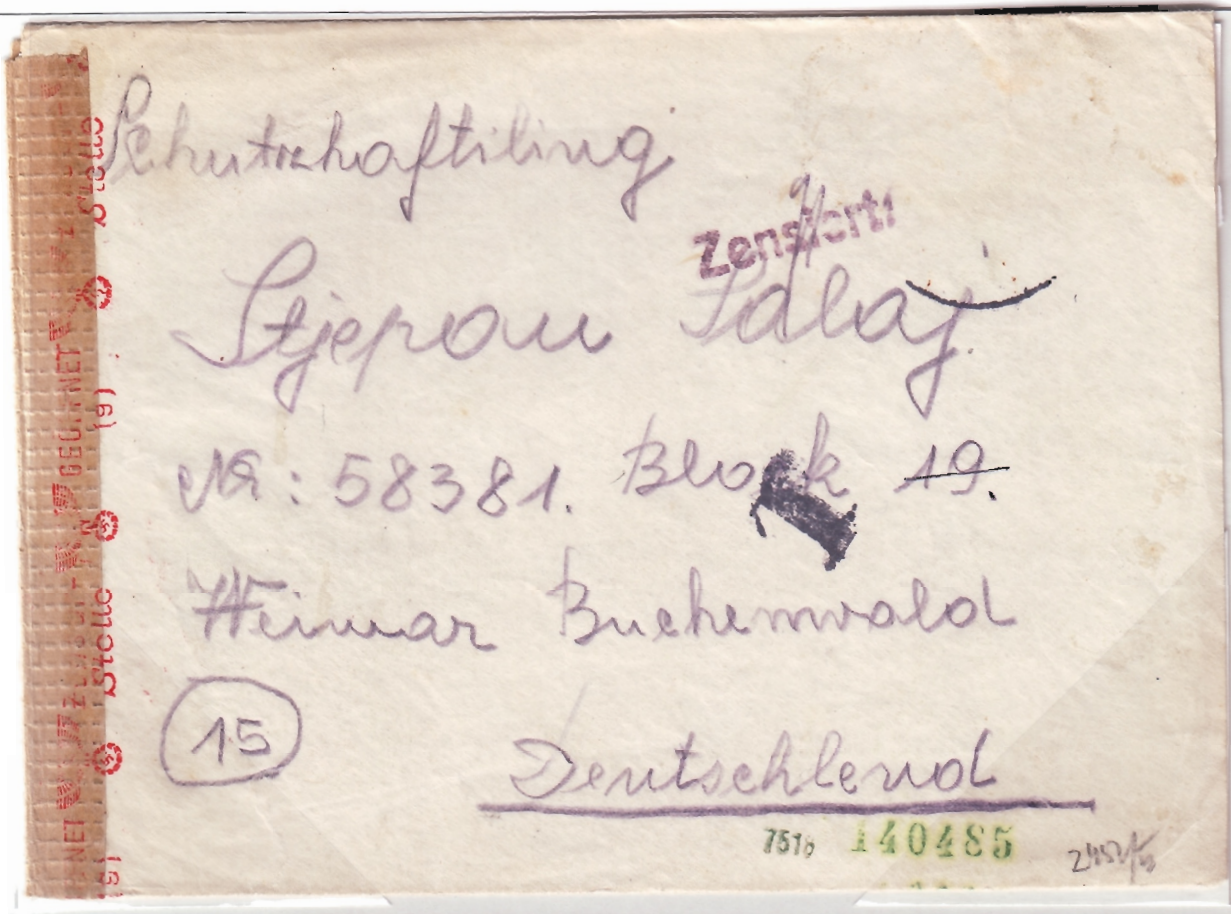 Schutzhaftiling
Zensiert!
Stjepan Salaj.
Nr: 58381. Block 19.
Weimar Buchenwald
15
Deutschlend
751b 140485